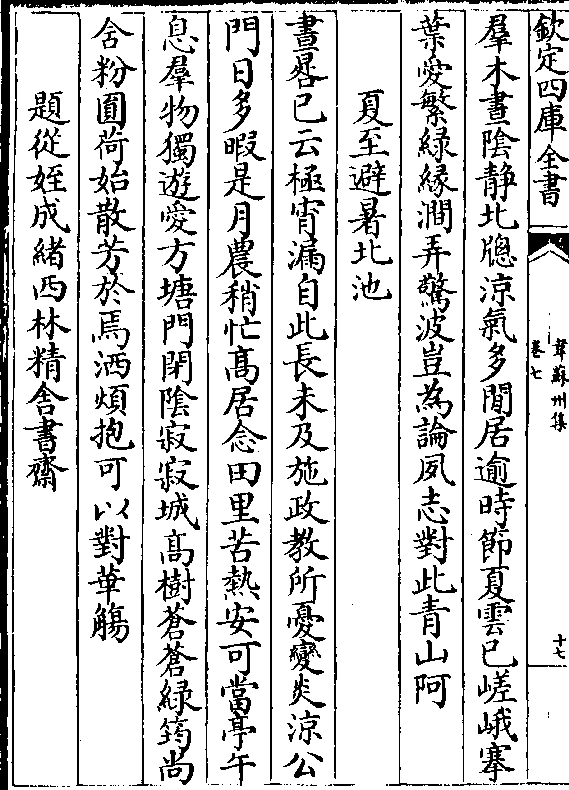 欽定四庫全書
韋蘇州集
卷七
十七
羣木晝陰靜北牕涼氣多閒居逾時節夏雲已嵯峨搴
葉愛繁緑緣澗弄驚波豈為論夙志對此青山阿
夏至避暑北池
晝晷已云極宵漏自此長未及施政教所憂變炎涼公
門日多暇是月農稍忙髙居念田里苦熱安可當亭午
息羣物獨遊愛方塘門閉陰寂寂城髙樹蒼蒼緑筠尚
含粉圓荷始散芳於焉洒煩抱可以對華觴
題從姪成緒西林精舍書齋